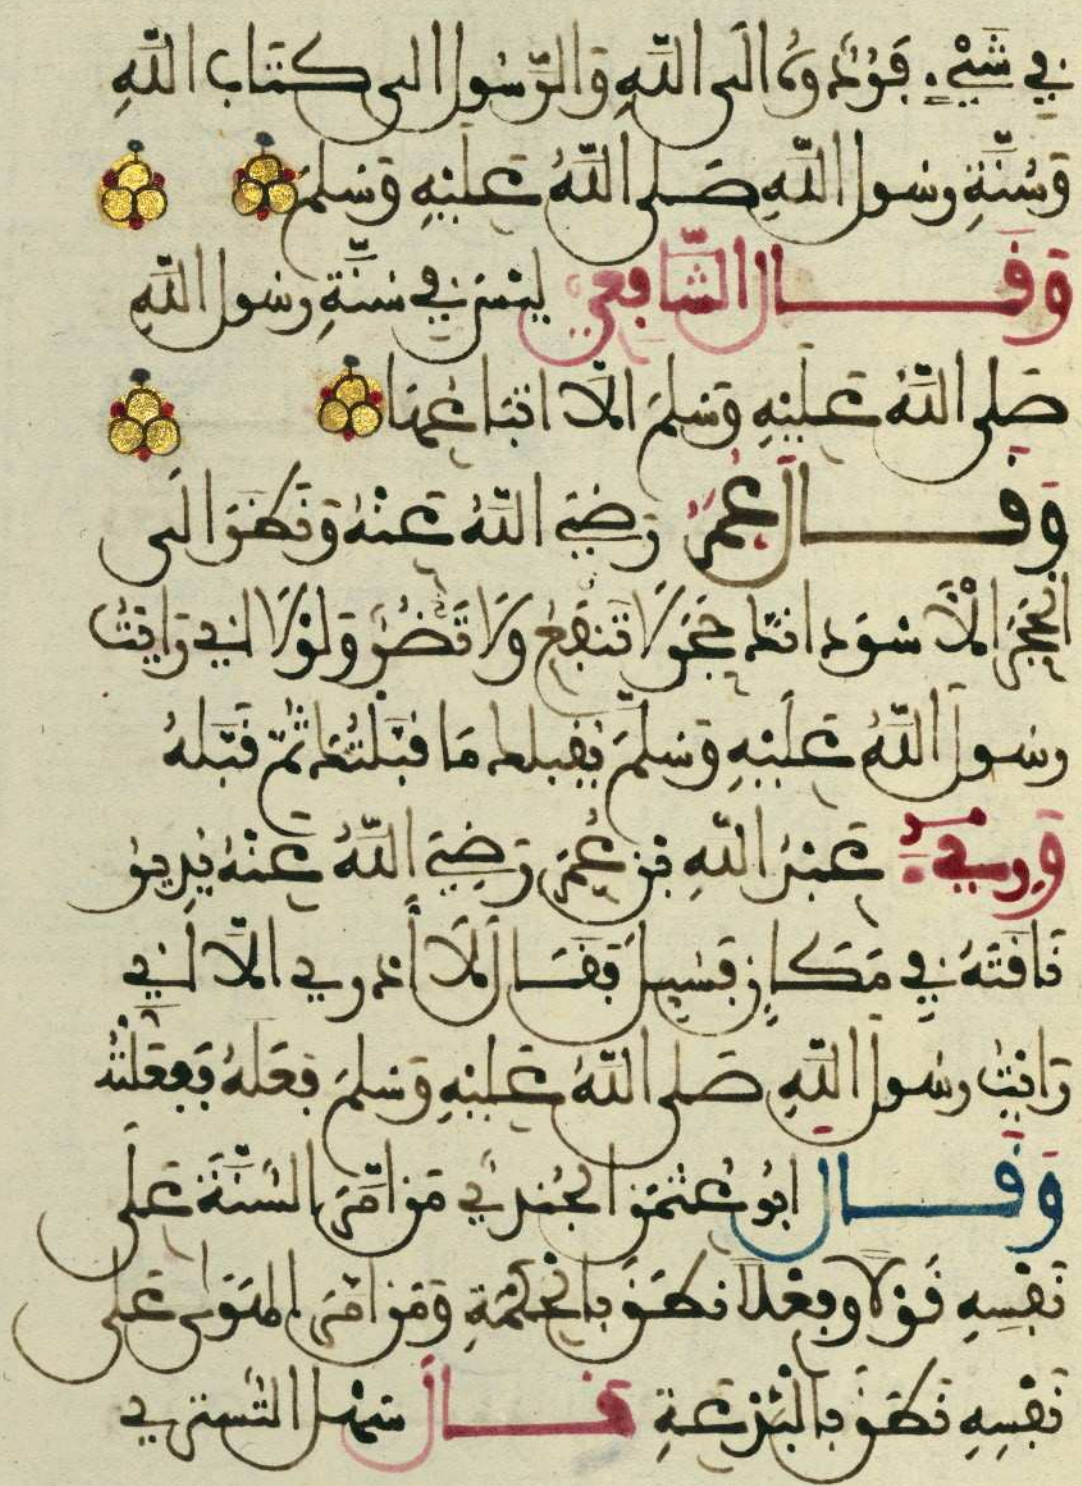 في شيء فردوه الى الله والرسول الى كتاب الله
وسنة رسول الله صلى الله عليه وسلم
وقال الشافعي ليس في سنة رسول الله
صلى الله عليه وسلم الا اتباعها
وقال عمر رضي الله عنه ونظر الى
الحجر الاسود انك حجر لا تنفع ولا تضر ولولا اني رايت
رسول الله عليه وسلم يقبلك ما قبلتك ثم قبله
وريء عبد الله بن عمر رضي الله عنه يدير
ناقته في مكان فسيل فقال لا أدري الا اني
رايت رسول الله صلى الله عليه وسلم فعله ففعلته
وقال ابو عثمن الجندي من امر السنة على
نفسه قولا وفعلا نطق بالحكمة ومن امر الهوى على
نفسه نطق بالبدعة قال سهل التستري